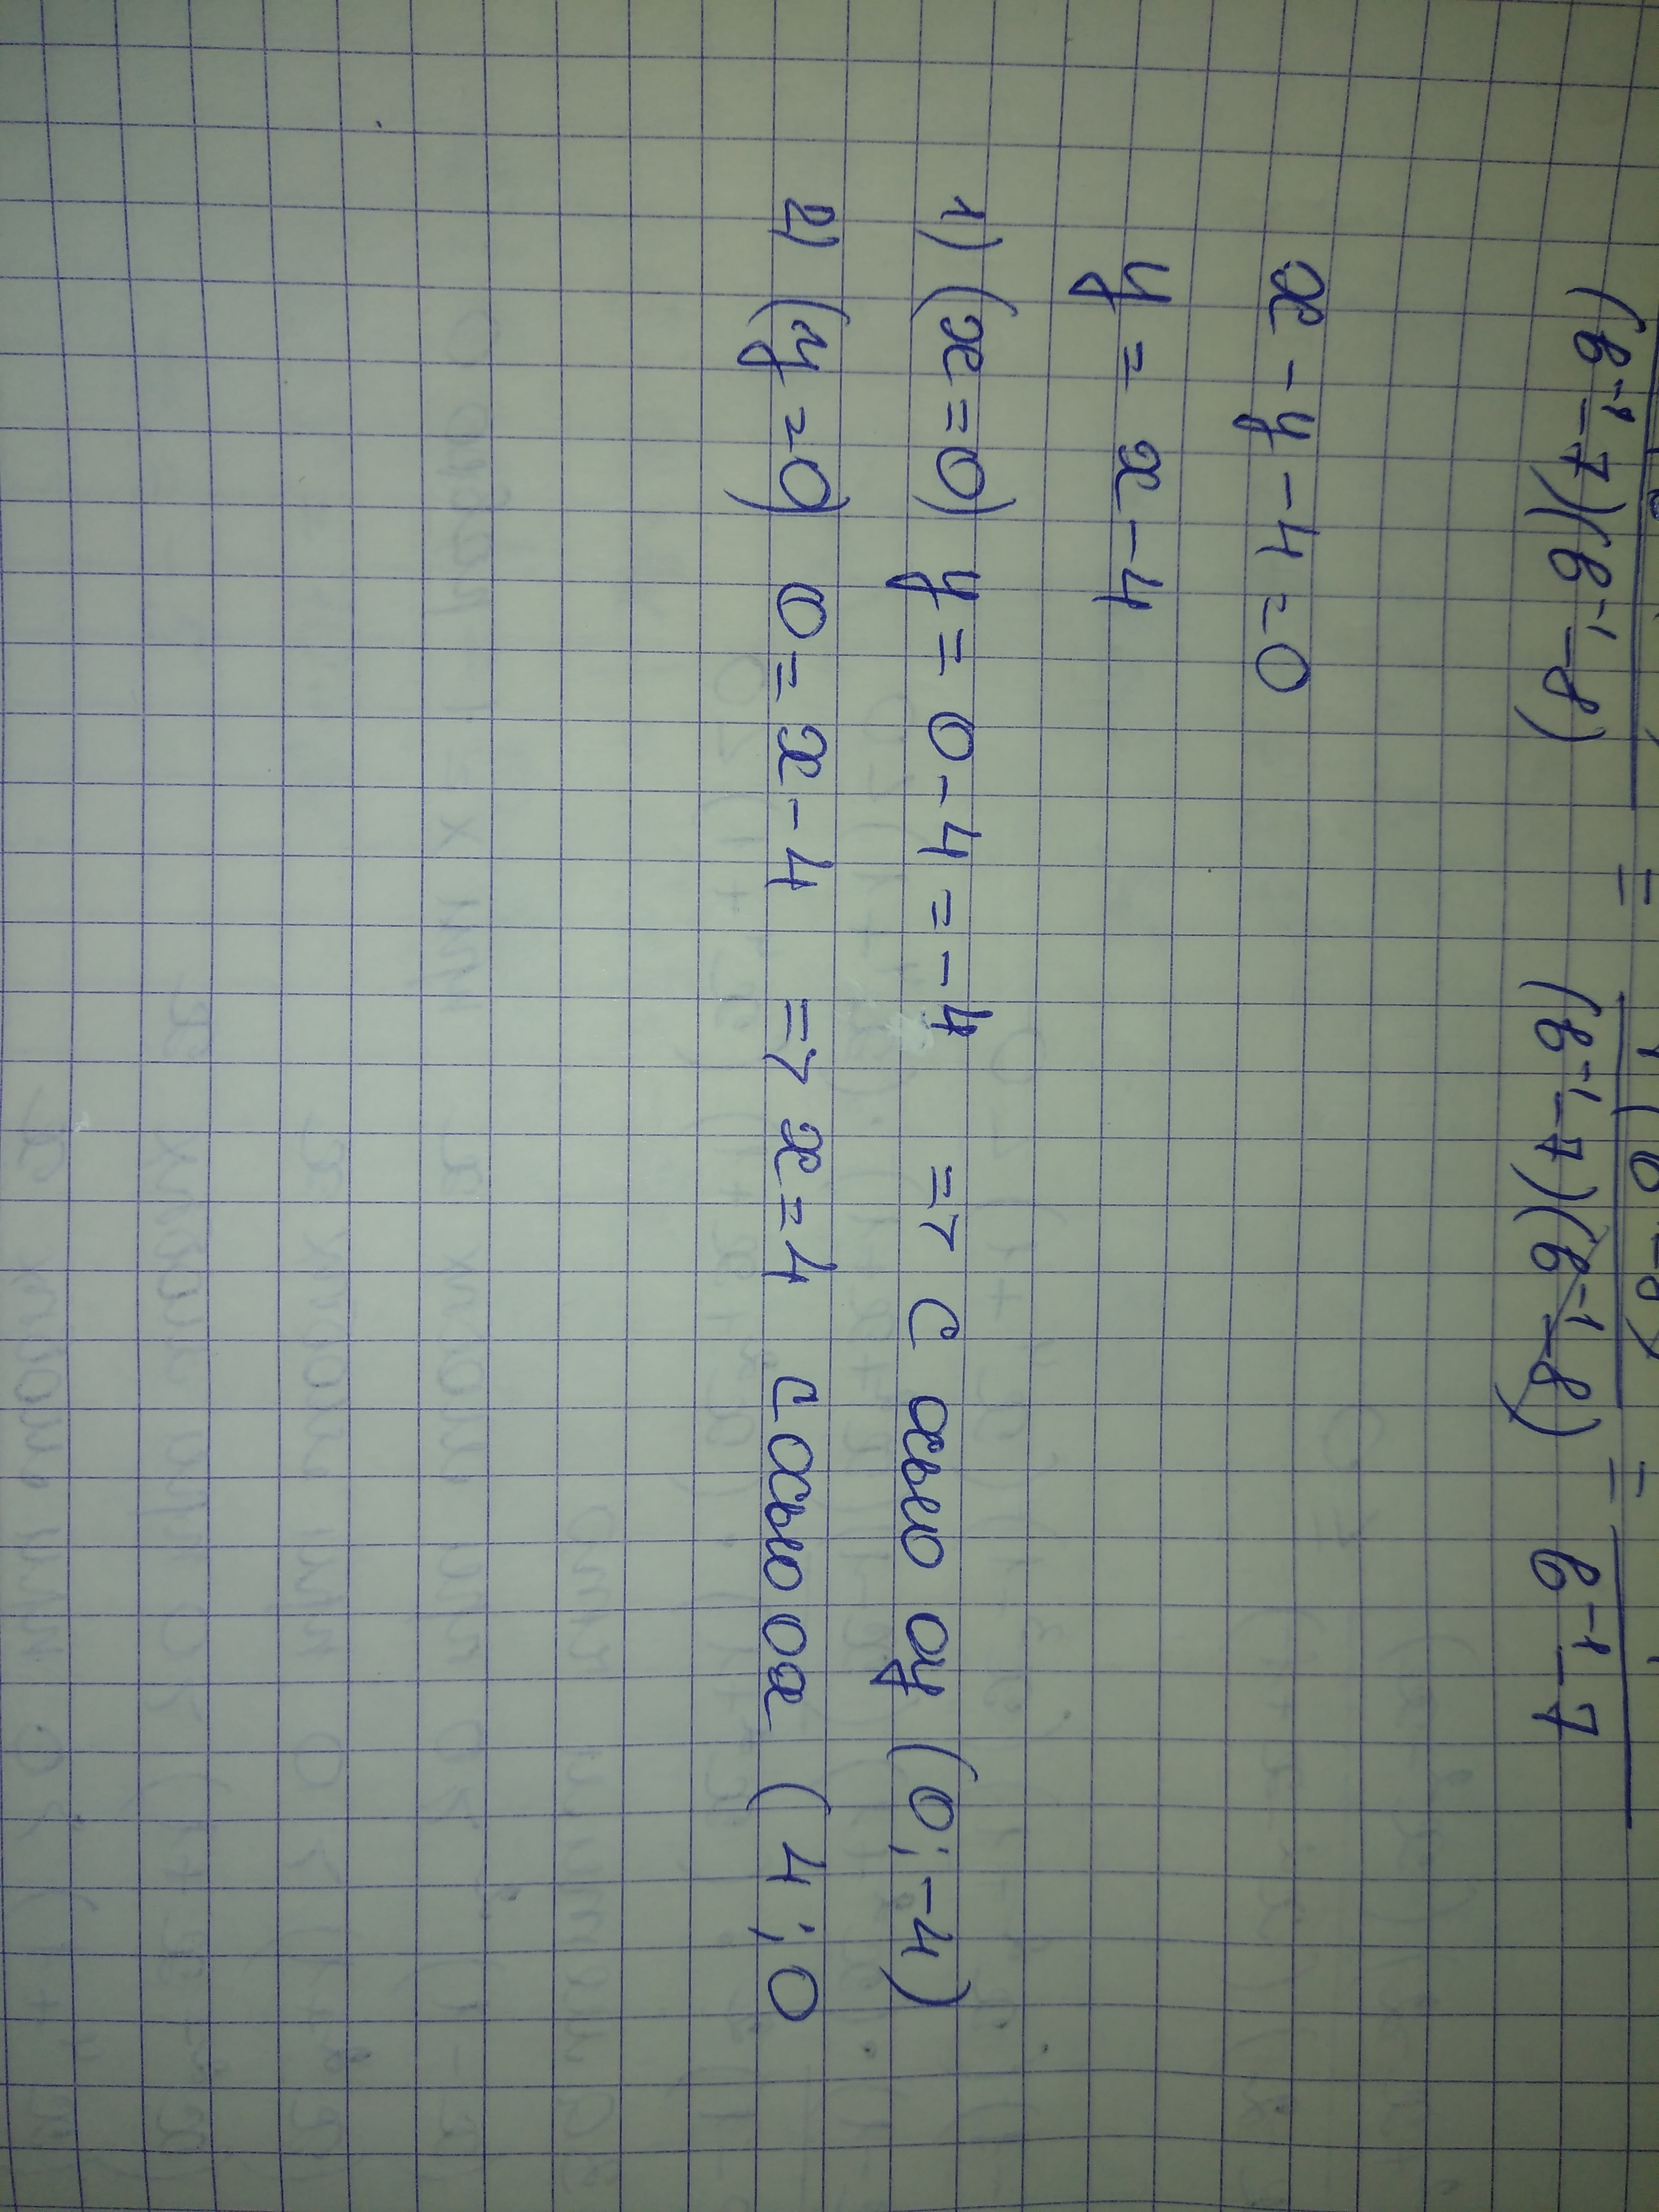 (в⁻¹-7)(в⁻¹-8) = (в⁻¹-7)(в⁻¹-8) = в⁻¹-7
x - y - 4 = 0
y = x - 4
1) (x = 0) y = 0 - 4 = -4 => С осью оу (0; -4)
2) (y = 0) 0 = x - 4 => x = 4 с осью ох (4; 0